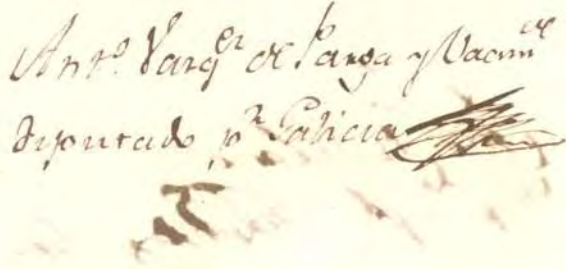 Antº. Vazqez de Parga y Vaamde
Diputado pr. Galicia